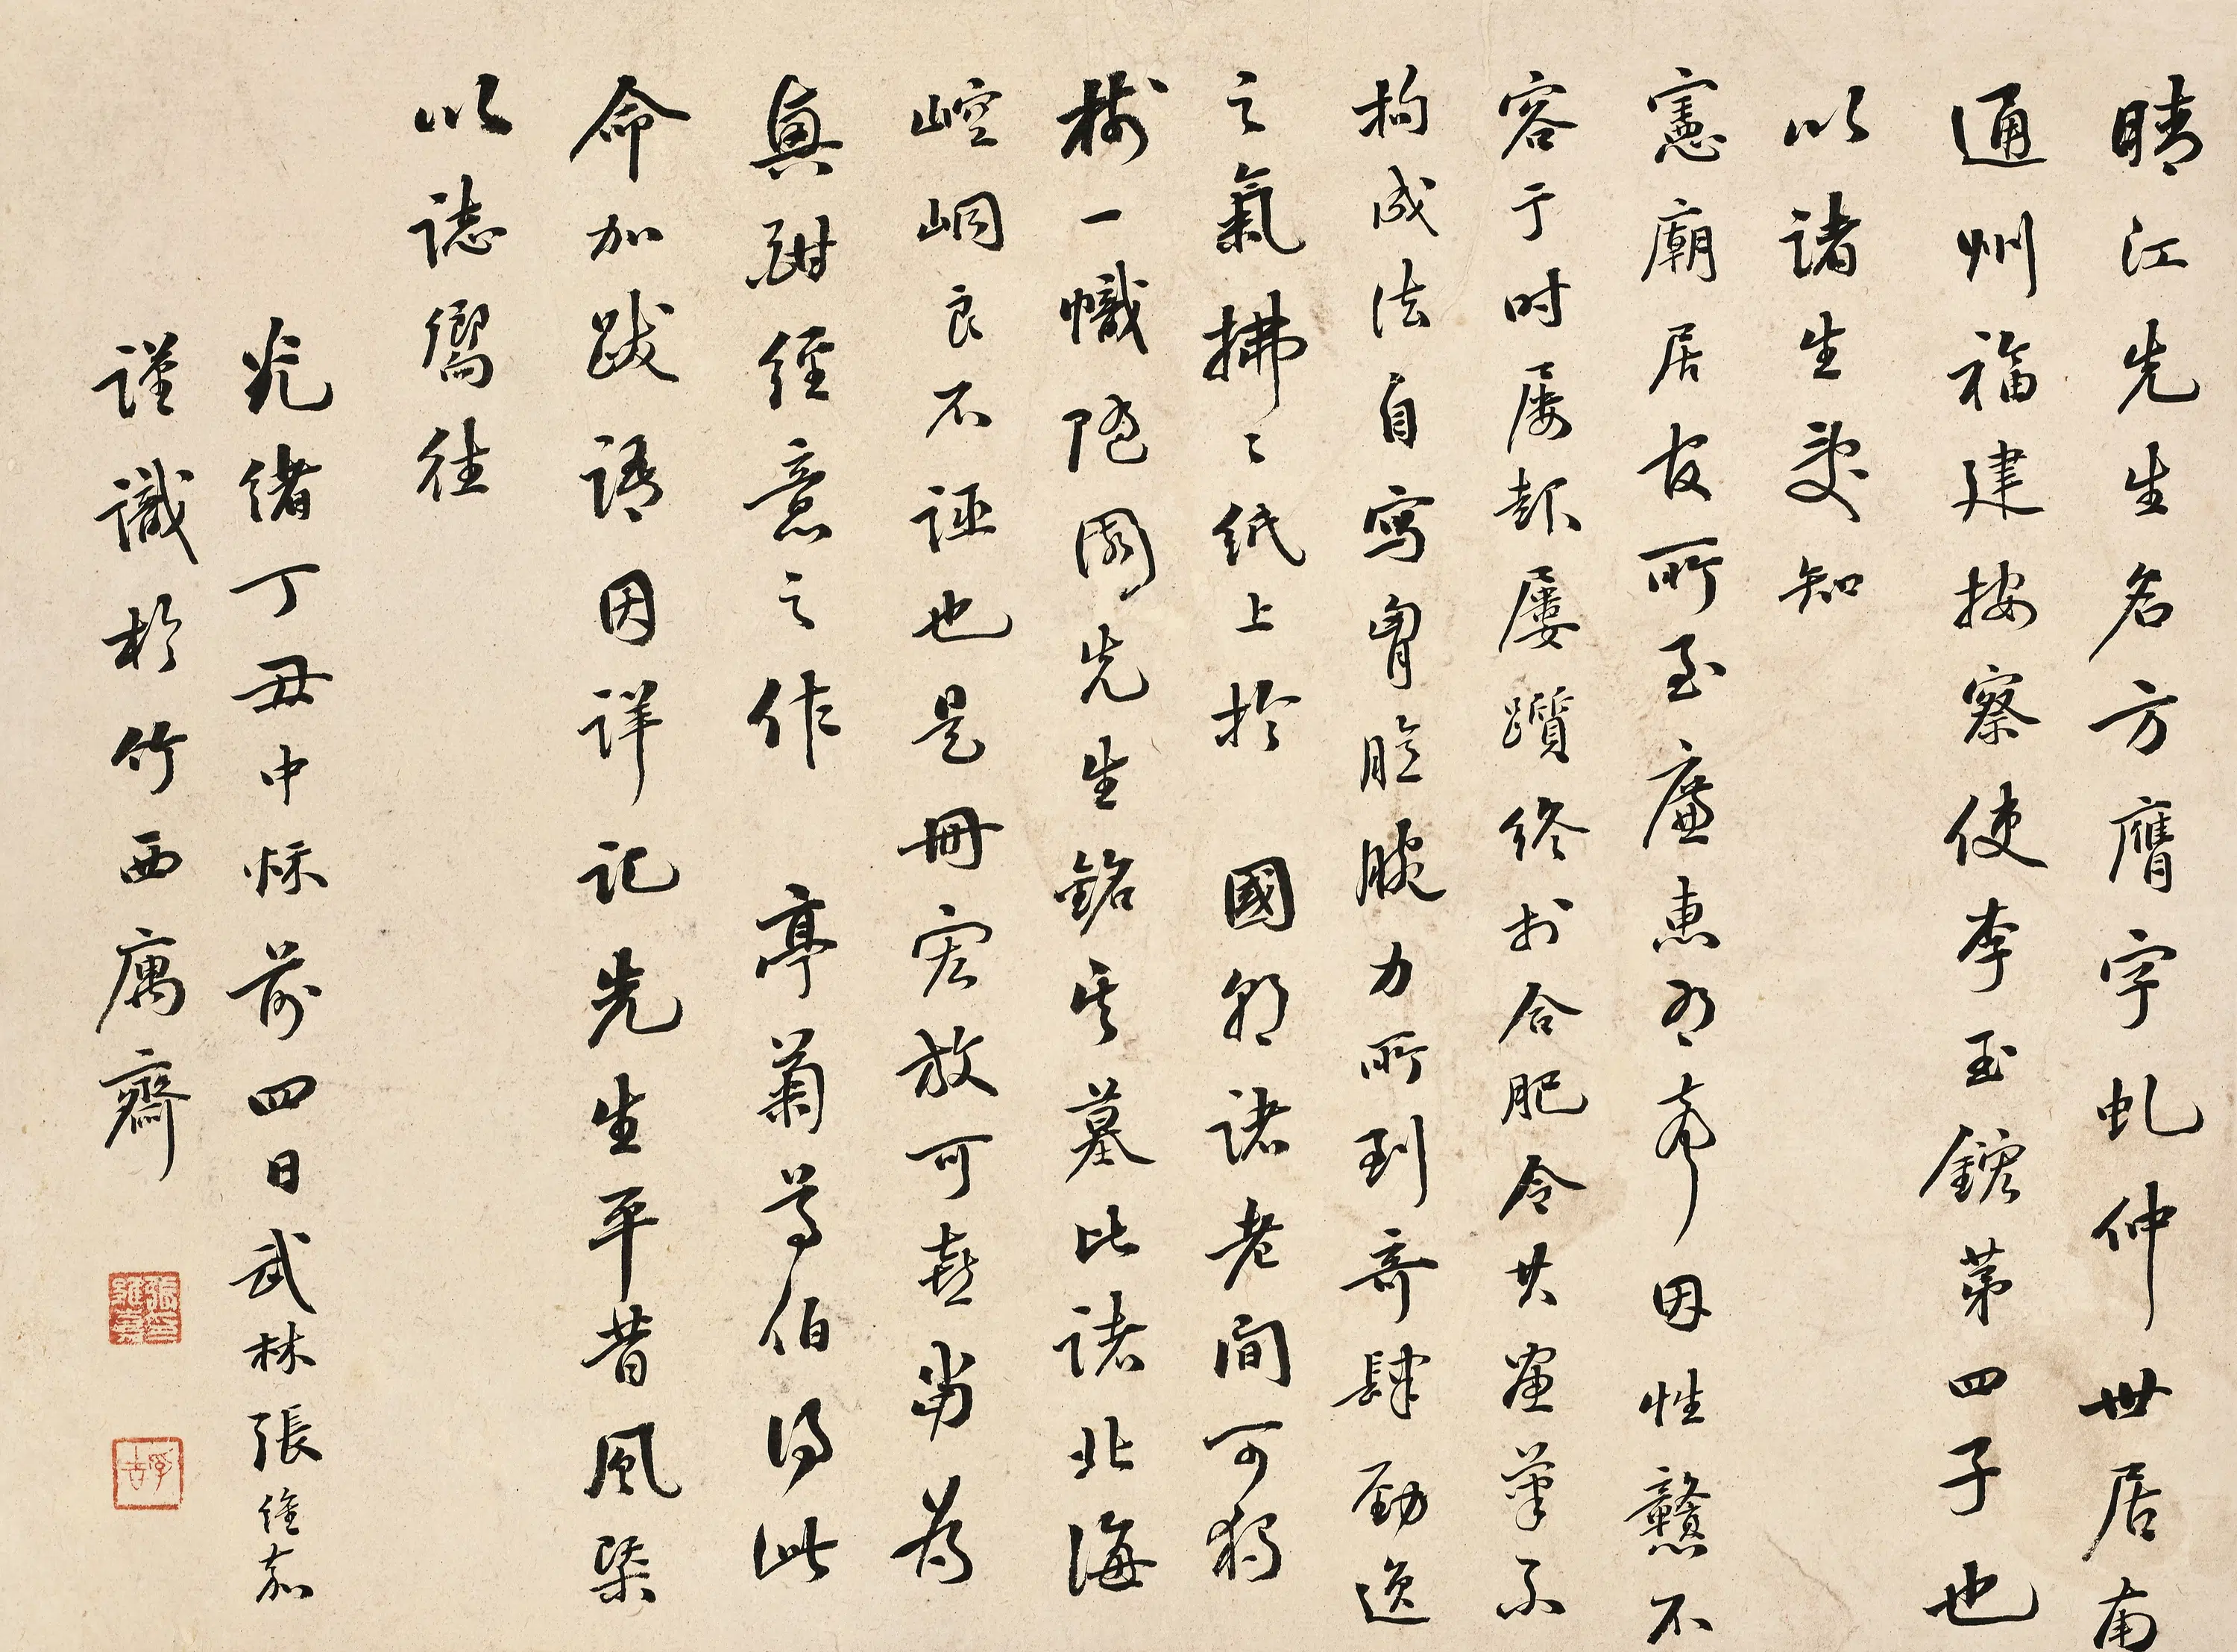 晴江先生名方膺字虬仲世居南
通州福建按察使李玉鋐第四子也
以諸生受知
憲廟居官所至廉惠有聲因性戇不
容于时屡起屢躓終於合肥令其畫筆不
拘成法自寫胷臆腕力所到奇肆勁逸
之氣拂〻紙上於　國朝諸老間可獨
樹一幟隨園先生銘其墓比諸北海
崆峒良不誣也是冊宏放可喜當為
真跡經意之作　亭菊尊伯得此
命加跋語因详记先生平昔風槩
以誌嚮往
光緒丁丑中秌前四日武林張維嘉
謹識於竹西寓齋